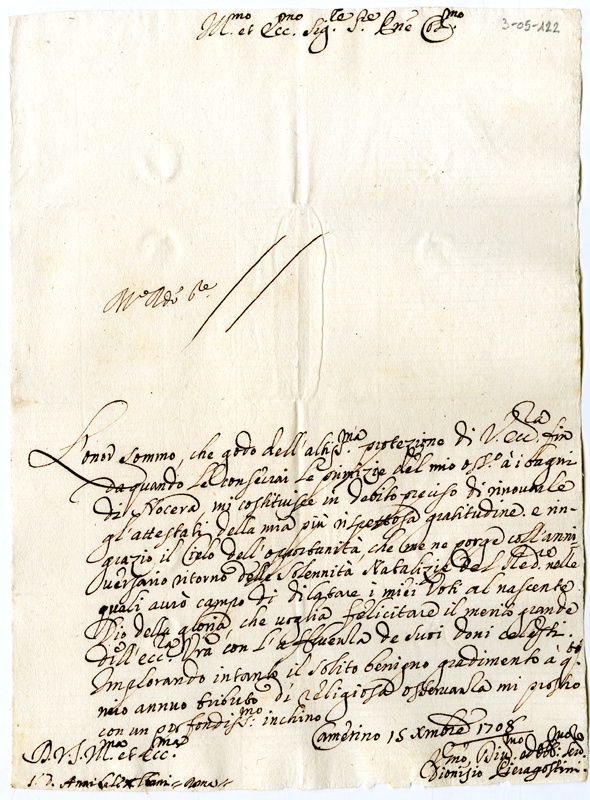 Ill.mo et Ecc.mo Sig.re Sig.re P.ne Col.mo
3-05-122
L'onor sommo, che godo dell'altiss.ma protezione di V. Ecc.za fin
da quando le consecrai le primizie del mio oss.o à i bagni
di Nocera, mi costituisce in debito preciso di rinovarle
gl'attestati della mia più rispettosa gratitudine, e rin-
grazio il Cielo dell'opportunità, che me ne porge coll'anni
versario ritorno delle Solennità Natalizie del Red.re nelle
quali avrò campo di dilatare i miei voti al nascente
Dio della gloria, che voglia felicitare il merito grande
dell'Ecc.za Vra con l'affluenza de suoi doni celesti.
Implorando intanto il solito benigno gradimento à q.to
mio annuo tributo di religiosa osservanza mi prostro
con un profondiss.mo inchino
Camerino 15 Xmbre 1708
D. V. S. Ill.ma et Ecc.ma
Dionisio Pieragostini